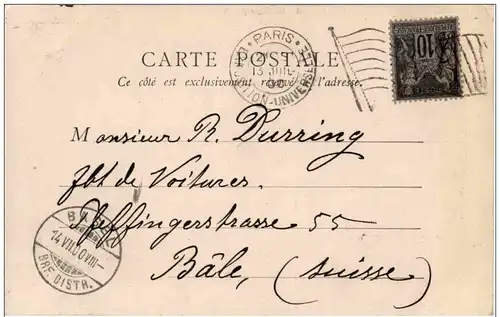 PARIS
EXPOSITION-UNIVERSELLE
13 JUIL
00
10
CARTE POSTALE
Ce côté est exclusivement réservé à l'adresse.
Monsieur R. Durring
fbt de Voitures.
Jeffingerstrasse 55
Bâle, (Suisse)
BASEL
14.VII.00.VIII—
BRF. DISTR.